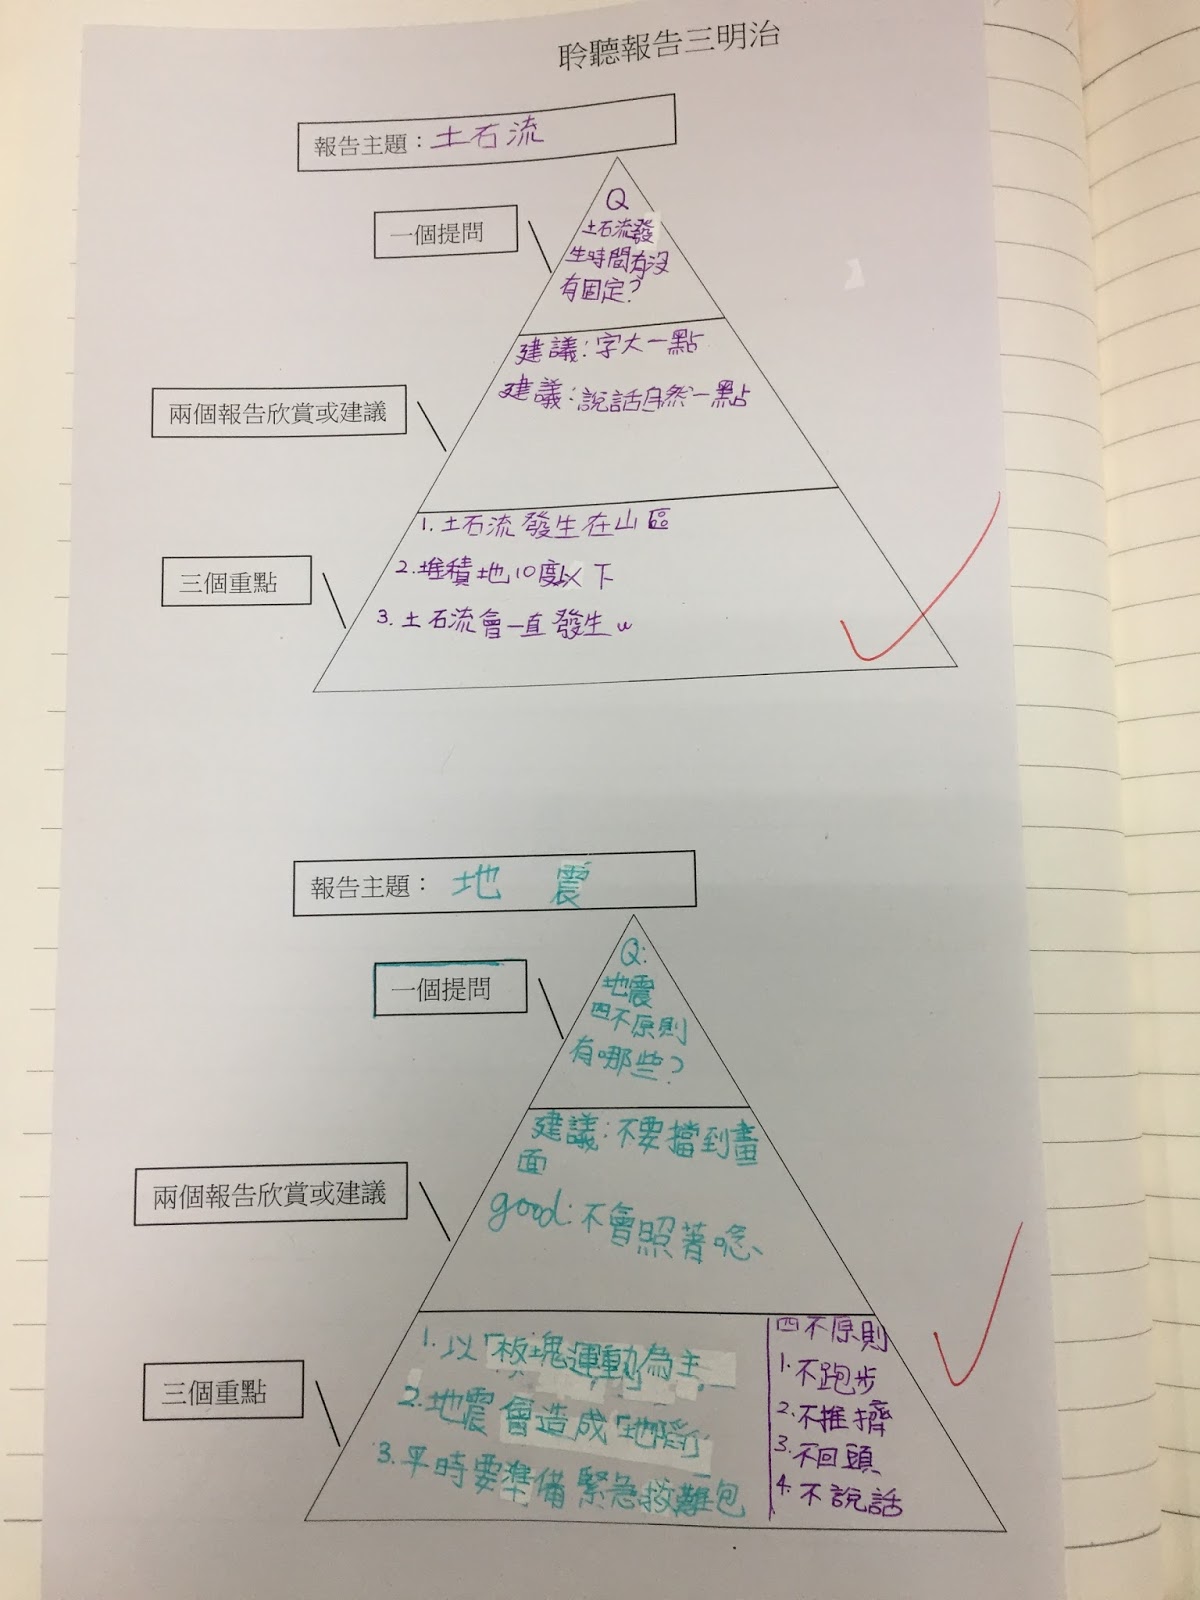 聆聽報告三明治
報告主題：土石流
一個提問
Q
土石流發
生時間有沒
有固定？
兩個報告欣賞或建議
建議：字大一點
建議：說話自然一點
三個重點
1. 土石流發生在山區
2. 堆積地10度以下
3. 土石流會一直發生
報告主題：地震
一個提問
Q:
地震
四不原則
有哪些？
兩個報告欣賞或建議
建議：不要擋到畫
面
good：不會照著唸
三個重點
1. 以「板塊運動為主」
2. 地震會造成「地
3. 平時要準備緊急救難包
四不原則
1. 不跑步
2. 不推擠
3. 不回頭
4. 不說話